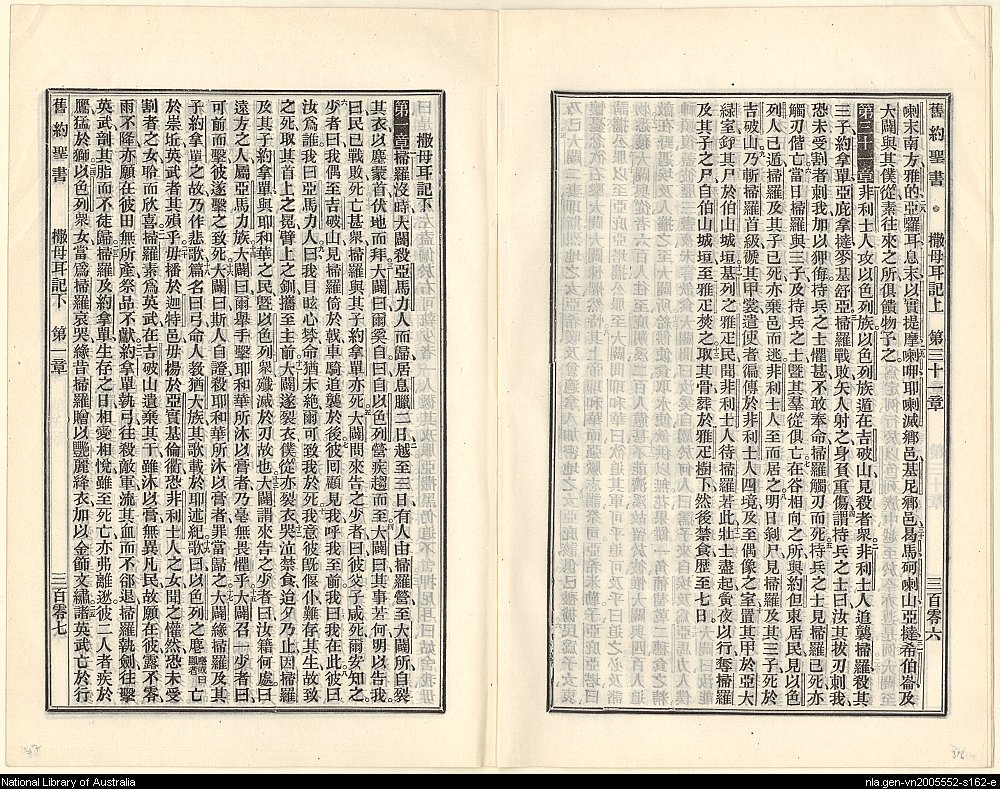 舊約聖書 撒母耳記上 第三十一章 三百零六
喇末南方雅的亞羅耳息末以實提摩喇哩耶喇滅鄉邑基尼鄉邑曷馬砢喇山亞撻希伯崙及
大闢與其僕從素往來之所俱饋物子之
第三十一章非利士人攻以色列族以色列族遁在吉破山見殺者衆非利士人追襲掃羅殺其
三子約拿單亞庇拿撻麥基舒亞掃羅戰敗矢人射之身負重傷謂持兵之士曰汝其拔刃刺我
恐未受割者刺我加以狎侮持兵之士懼甚不敢奉命掃羅觸刃而死持兵之士見掃羅已死亦
觸刃偕亡當日掃羅與三子及持兵之士暨其羣從俱亡在谷相向之所與約但東居民見以色
列人已遁掃羅及其子已死亦棄邑而逃非利士人至而居之明日剝尸見掃羅及其三子死於
吉破山乃斬掃羅首級褫其甲裳遣使者徧傳於非利士人四境及至偶像之室置其甲於亞大
綠室釘其尸於伯山城垣基列之雅疋民聞非利士人待掃羅若此壯士盡起夤夜以行奪掃羅
及其子之尸自伯山城垣至雅疋焚之取其骨葬於雅疋樹下然後禁食歷至七日
撒母耳記下
第一章掃羅沒時大闢殺亞馬力人而歸居息臘二日越至三日有人由掃羅營至大闢所自裂
其衣以塵蒙首伏地而拜大闢曰爾奚自曰我自以色列營疾趨而至大闢曰其事若何明以告我
曰民已戰敗死亡甚衆掃羅與其子約拿單亦死大闢問來告之少者曰彼父子咸死爾安知之
少者曰我偶至吉破山見掃羅倚於戟車騎追襲於後彼回顧見我呼我至前我曰我在此彼曰
汝爲誰我曰亞馬力人曰我目眩心瞀命猶未絕爾可致我於死我意彼旣偃仆難存其生故致
之死取其首上之冕臂上之釧攜至主前大闢遂裂衣僕從亦裂衣哭泣禁食迨夕乃止因掃羅
及其子約拿單與耶和華之民暨以色列羣殲滅於刃故也大闢謂來告之少者曰汝籍何處曰
遠方之人屬亞馬力族大闢曰爾舉手擊耶和華所沐以膏者乃毫無畏懼乎大闢召一少者曰
可前而擊彼遂擊之致死大闢曰斯人自證殺耶和華所沐以膏者罪當歸之大闢緣掃羅及其
子約拿單之故乃作悲歌篇名曰弓命人教猶大族其歌載於耶述紀歌曰以色列之麀亡
於崇坵英武者其殞乎毋播於迦特邑毋揚於亞實基倫衢恐非利士人之女聞之懽然恐未受
割者之女聆而欣喜掃羅素爲英武在吉破山遺棄其干雖沐以膏無異凡民故願在彼露不零
雨不降亦願在彼田無所產祭品不獻約拿單執弓往殺敵軍流其血而不郤退掃羅執劍往擊
英武剖其脂而不徒歸掃羅及約拿單生存之日相愛相悅雖至死亡亦弗離逖彼二人者疾於
鵰猛於獅以色列衆女當爲掃羅哀哭緣昔掃羅賵以麗絳衣加以金飾文繡諸英武亡於行
舊約聖書 撒母耳記下 第一章 三百零七
National Library of Australia
nla.gen-vn2005552-s162-e